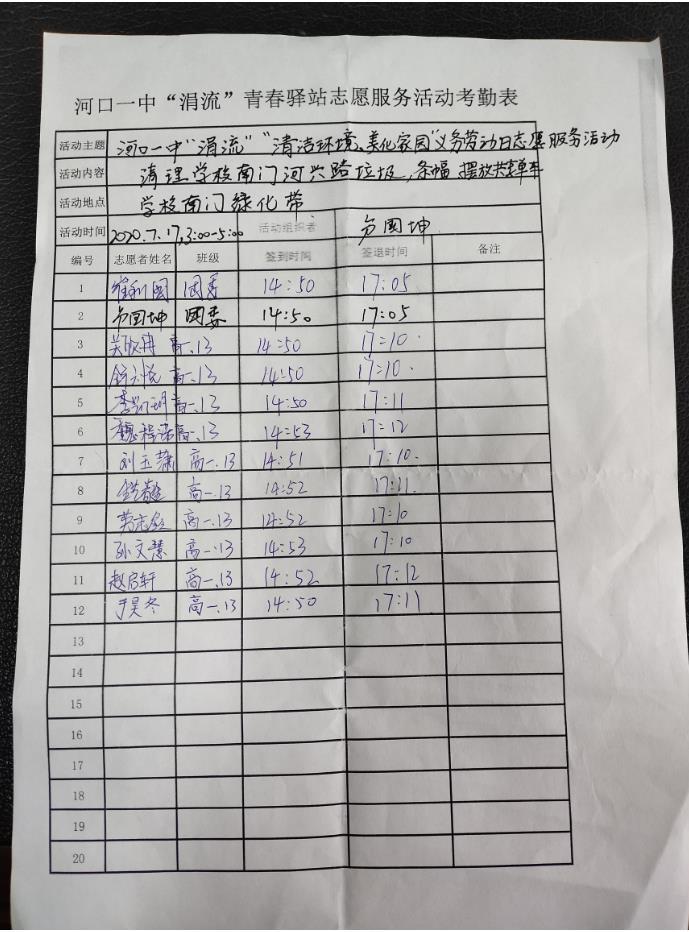 河口一中“涓流”青春驿站志愿服务活动考勤表
活动主题 河口一中“涓流”“清洁环境、美化家园”义务劳动日志愿服务活动
活动内容 清理学校南门河兴路垃圾,条幅,摆放共享单车
活动地点 学校南门绿化带
活动时间 2020.7.17,3:00-5:00 活动组织者 方国坤
编号 志愿者姓名 班级 签到时间 签退时间 备注
1 团委 14:50 17:05
2 方国坤 团委 14:50 17:05
3 高一.13 14:50 17:10
4 高一.13 14:50 17:10
5 高一.13 14:50 17:11
6 高一.13 14:53 17:12
7 刘玉萧 高一.13 14:51 17:10
8 高一.13 14:52 17:11
9 高一.13 14:52 17:10
10 孙文慧 高一.13 14:53 17:10
11 赵启轩 高一.13 14:52 17:12
12 于昊冬 高一.13 14:50 17:11
13
14
15
16
17
18
19
20